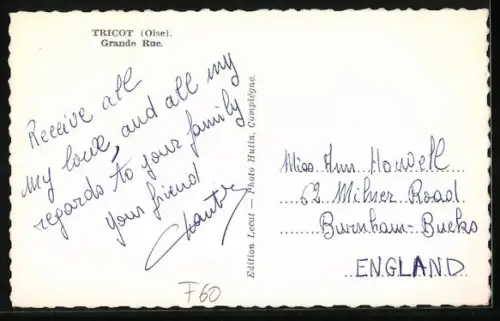 TRICOT (Oise).
Grande Rue.
Receive all
my love, and all my
regards to your family
your friend
Edition Lecat — Photo Hutin, Compiègne.
Miss Ann Howell
62 Milner Road
Burnham-Bucks
ENGLAND
F60